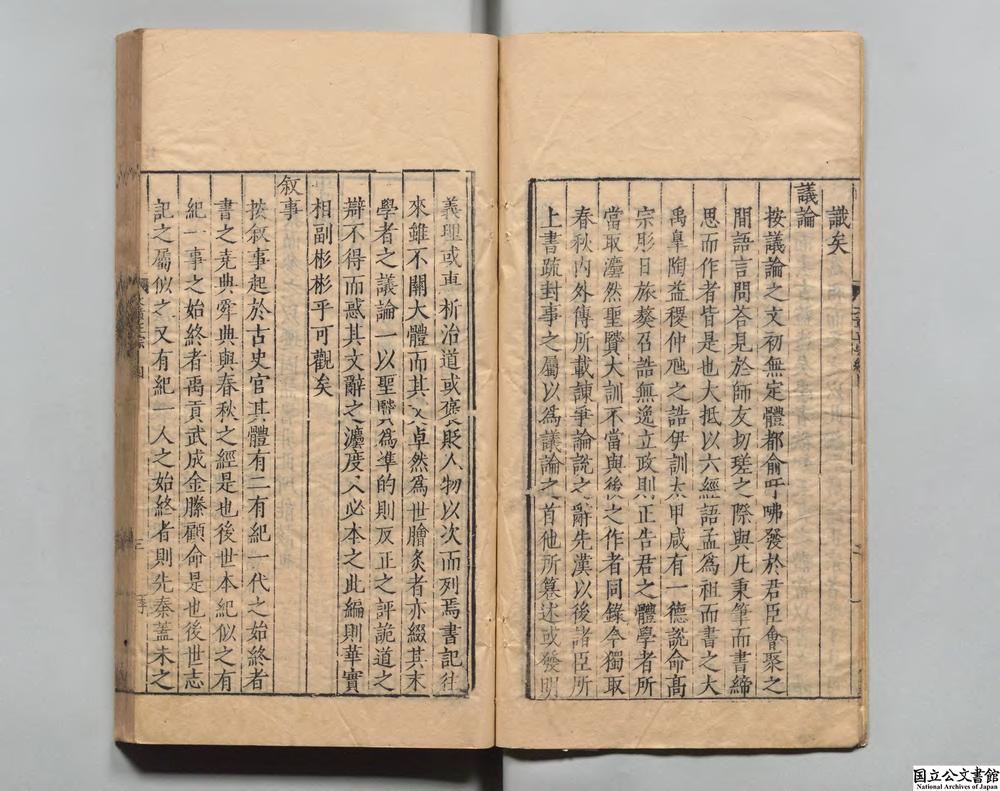 識矣
議論
按議論之文初無定體都俞吁咈發於君臣會聚之
間語言問荅見於師友切磋之際與凡秉筆而書締
思而作者皆是也大抵以六經語孟為祖而書之大
禹臯陶益稷仲虺之誥伊訓太甲咸有一德說命高
宗肜日旅獒召誥無逸立政則正告君之體學者所
當取灋然聖賢大訓不當與後之作者同錄今獨取
春秋内外傳所載諫爭論說之辭先漢以後諸臣所
上書疏封事之屬以為議論之首他所纂述或發明
義理或專析治道或襃貶人物以次而列焉書記往
來雖不關大體而其文卓然為世膾炙者亦綴其末
學者之議論一以聖賢為準的則反正之評詭道之
辯不得而惑其文辭之灋度又必本之此編則華實
相副彬彬乎可觀矣
叙事
按叙事起於古史官其體有二有紀一代之始終者
書之堯典舜典與春秋之經是也後世本紀似之有
紀一事之始終者禹貢武成金縢顧命是也後世志
記之屬似之又有紀一人之始終者則先秦蓋未之
国立公文書館
National Archives of Japan